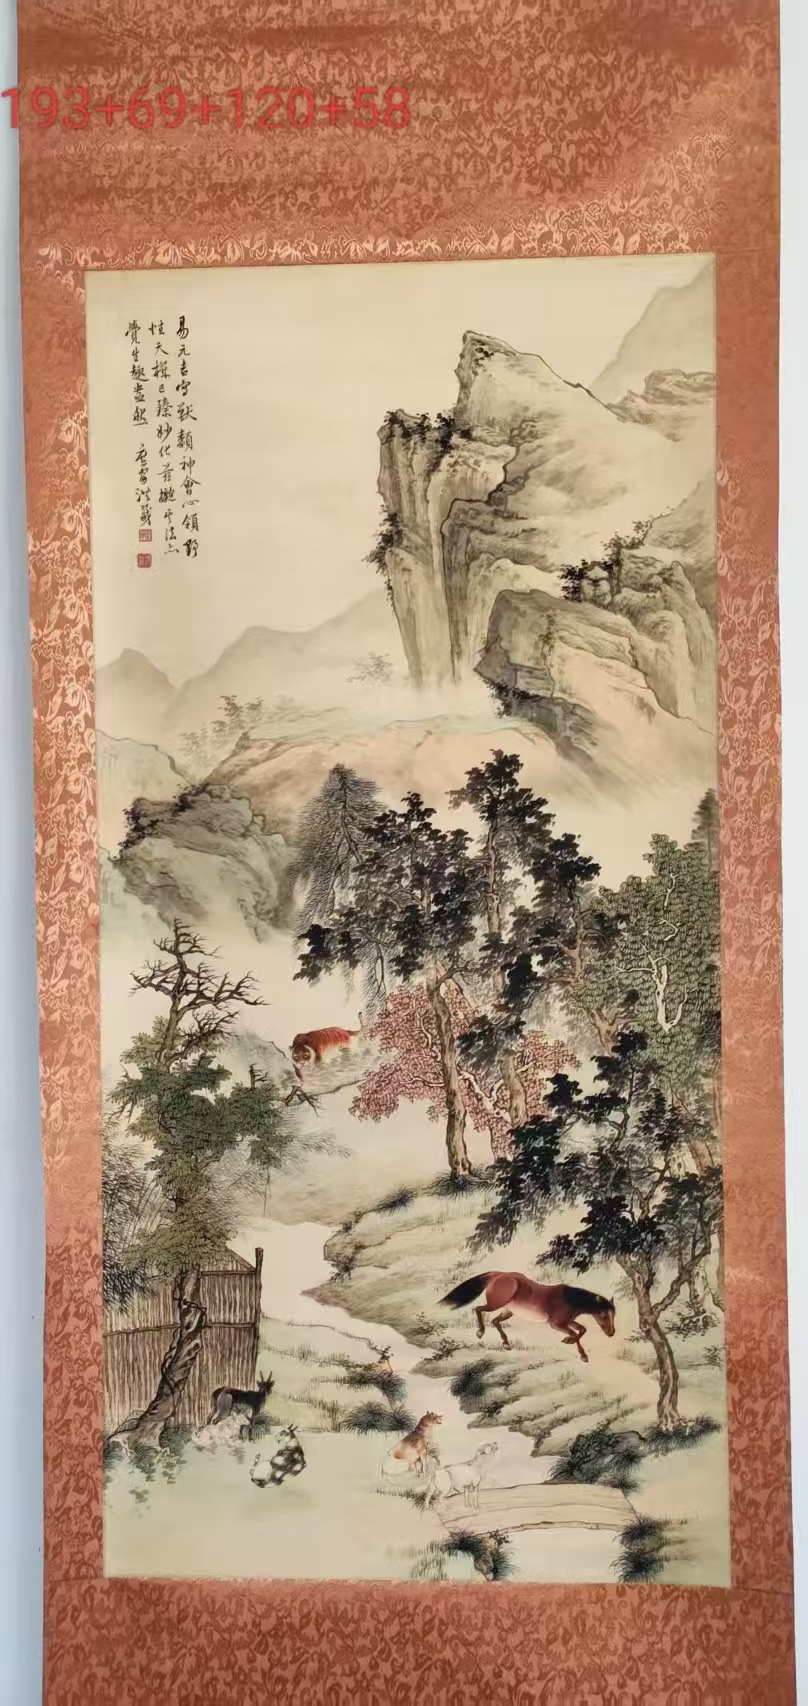 193+69+120+58
易元吉寫獸類神會心領野
性天機已臻妙化茲擬其法亦
覺生趣盎然